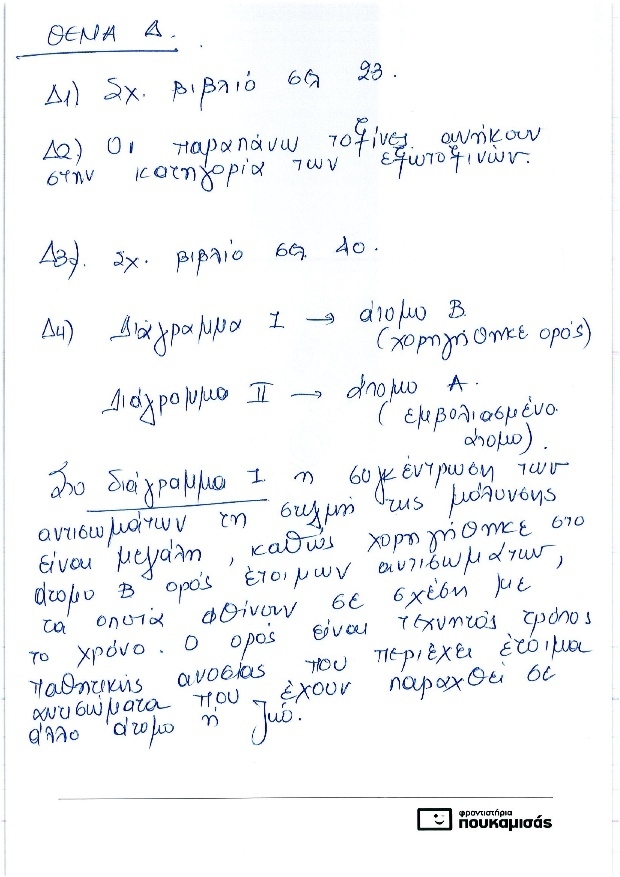 ΘΕΜΑ Δ.
Δ1) Σχ. βιβλίο σελ 23.
Δ2) Οι παραπάνω τοξίνες ανήκουν
στην κατηγορία των εξωτοξινών.
Δ3). Σχ. βιβλίο σελ. 40.
Δ4) Διάγραμμα I → άτομο Β.
(χορηγήθηκε ορός)
Διάγραμμα II → άτομο Α.
(εμβολιασμένο
άτομο).
Στο διάγραμμα I η συγκέντρωση των
αντισωμάτων τη στιγμή της μόλυνσης
είναι μεγάλη, καθώς χορηγήθηκε στο
άτομο Β ορός έτοιμων αντισωμάτων,
τα οποία φθίνουν σε σχέση με
το χρόνο. Ο ορός είναι τεχνητός τρόπος
παθητικής ανοσίας που περιέχει έτοιμα
αντισώματα που έχουν παραχθεί σε
άλλο άτομο ή ζώο.
φροντιστήρια
πουκαμισάς